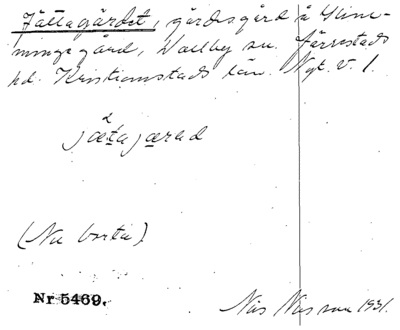 Jättagärdet, gärdsgård å Glim-
minge gård, Vallby sn. Järrestads
hd. Kristianstads län. Ngt. V. 1.
jætajærad
(Nu borta)
Nr 5469.
Nils 1931.